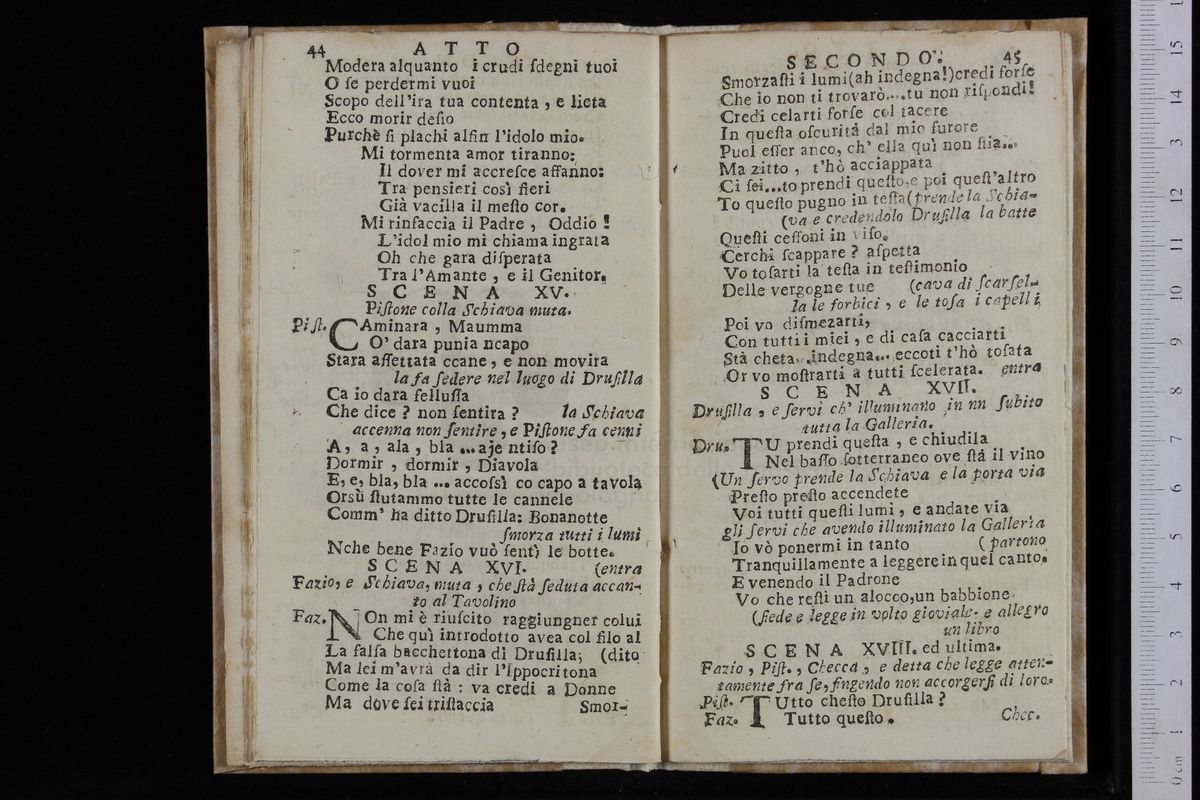 44 ATTO
Modera alquanto i crudi ſdegni tuoi
O ſe perdermi vuoi
Scopo dell'ira tua contenta , e lieta
Ecco morir deſio
Purchè ſi plachi alfin l'idolo mio.
Mi tormenta amor tiranno:
Il dover mi accreſce affanno:
Tra penſieri così fieri
Già vacilla il meſto cor.
Mi rinfaccia il Padre , Oddio !
L'idol mio mi chiama ingrata
Oh che gara diſperata
Tra l'Amante , e il Genitor.
SCENA XV.
Piſtone colla Schiava muta.
Piſt. CAminara , Maumma
O' dara punia ncapo
Stara aſſettata ccane , e non movira
la fa ſedere nel luogo di Druſilla
Ca io dara felluſſa
Che dice ? non ſentira ? la Schiava
accenna non ſentire , e Piſtone fa cenni
A , a , ala , bla ... aje ntiſo ?
Dormir , dormir , Diavola
E, e, bla, bla ... accoſsì co capo a tavola
Orsù ſtutammo tutte le cannele
Comm' ha ditto Druſilla: Bonanotte
ſmorza tutti i lumi
Nche bene Fazio vuò ſentì le botte.
SCENA XVI. (entra
Fazio, e Schiava, muta , che ſtà ſeduta accan-
to al Tavolino
Faz. NOn mi è riuſcito raggiungner colui
Che quì introdotto avea col filo al
La falſa bacchettona di Druſilla; (dito
Ma lei m'avrà da dir l'Ippocritona
Come la coſa ſtà : va credi a Donne
Ma dove ſei triſtaccia
Smor-
SECONDO. 45
Smorzaſti i lumi(ah indegna!)credi forſe
Che io non ti trovarò....tu non riſpondi!
Credi celarti forſe col tacere
In queſta oſcurità dal mio furore
Puol eſſer anco, ch' ella quì non ſtia...
Ma zitto , t'hò acciappata
Ci ſei...to prendi queſto,e poi queſt'altro
To queſto pugno in teſta(prende la Schia-
(va e credendolo Druſilla la batte
Queſti ceſſoni in viſo.
Cerchi ſcappare ? aſpetta
Vo toſarti la teſta in teſtimonio
Delle vergogne tue (cava di ſcarſel-
la le forbici , e le toſa i capelli
Poi vo diſmezarti,
Con tutti i miei , e di caſa cacciarti
Stà cheta...indegna... eccoti t'hò toſata
Or vo moſtrarti a tutti ſcelerata. entra
SCENA XVII.
Druſilla , e ſervi ch' illuminano in nn ſubito
tutta la Galleria.
Dru. TU prendi queſta , e chiudila
Nel baſſo ſotterraneo ove ſtà il vino
(Un ſervo prende la Schiava e la porta via
Preſto preſto accendete
Voi tutti queſti lumi , e andate via
gli ſervi che avendo illuminato la Galleria
Io vò ponermi in tanto (partono
Tranquillamente a leggere in quel canto.
E venendo il Padrone
Vo che reſti un alocco,un babbione
(ſiede e legge in volto gioviale. e allegro
un libro
SCENA XVIII. ed ultima.
Fazio , Piſt., Checca , e detta che legge atten-
tamente fra ſe, fingendo non accorgerſi di loro.
Piſt. TUtto cheſto Druſilla ?
Faz. Tutto queſto .
Chec.